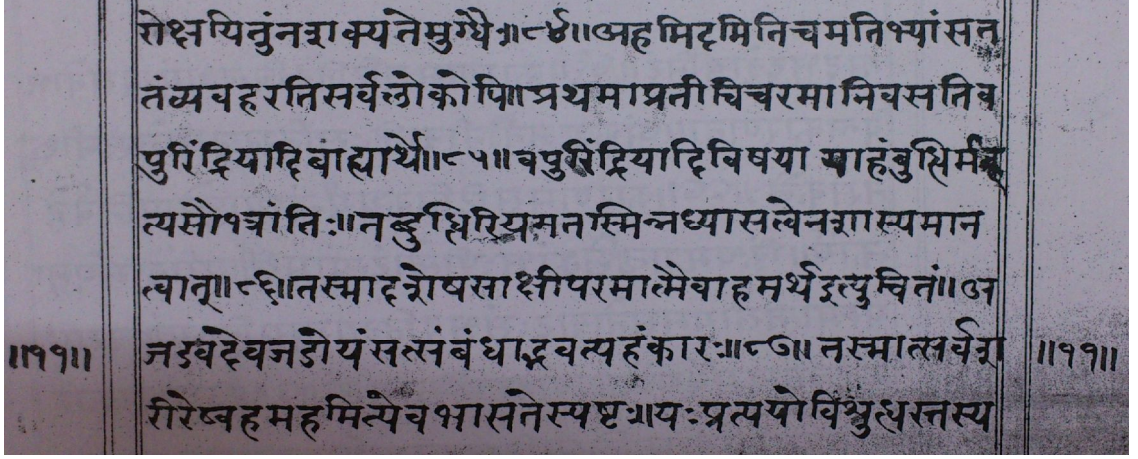 रोक्षयितुंनशक्यतेमुग्धैः॥८४॥अहमिदमितिचमतिभ्यांसत
तंव्यवहरतिसर्वलोकोपि॥प्रथमाप्रतीचिचरमानिवसतिव
पुरिंद्रियादिबाह्यार्थे॥८५॥वपुरिंद्रियादिविषया याहंबुद्धिर्मह
त्यसौभ्रांतिः॥तद्बुद्धिरियमतस्मिन्नध्यासत्वेनशास्यमान
त्वात्॥८६॥तस्मादशेषसाक्षीपरमात्मैवाहमर्थइत्युचितं॥अ
॥११॥ जडवदेवजडोयंसत्संबंधाद्भवत्यहंकारः॥८७॥तस्मात्सर्वश ॥११॥
रीरेष्वहमहमित्येवभासतेस्पष्टः॥यःप्रत्ययोविशुद्धस्तस्य